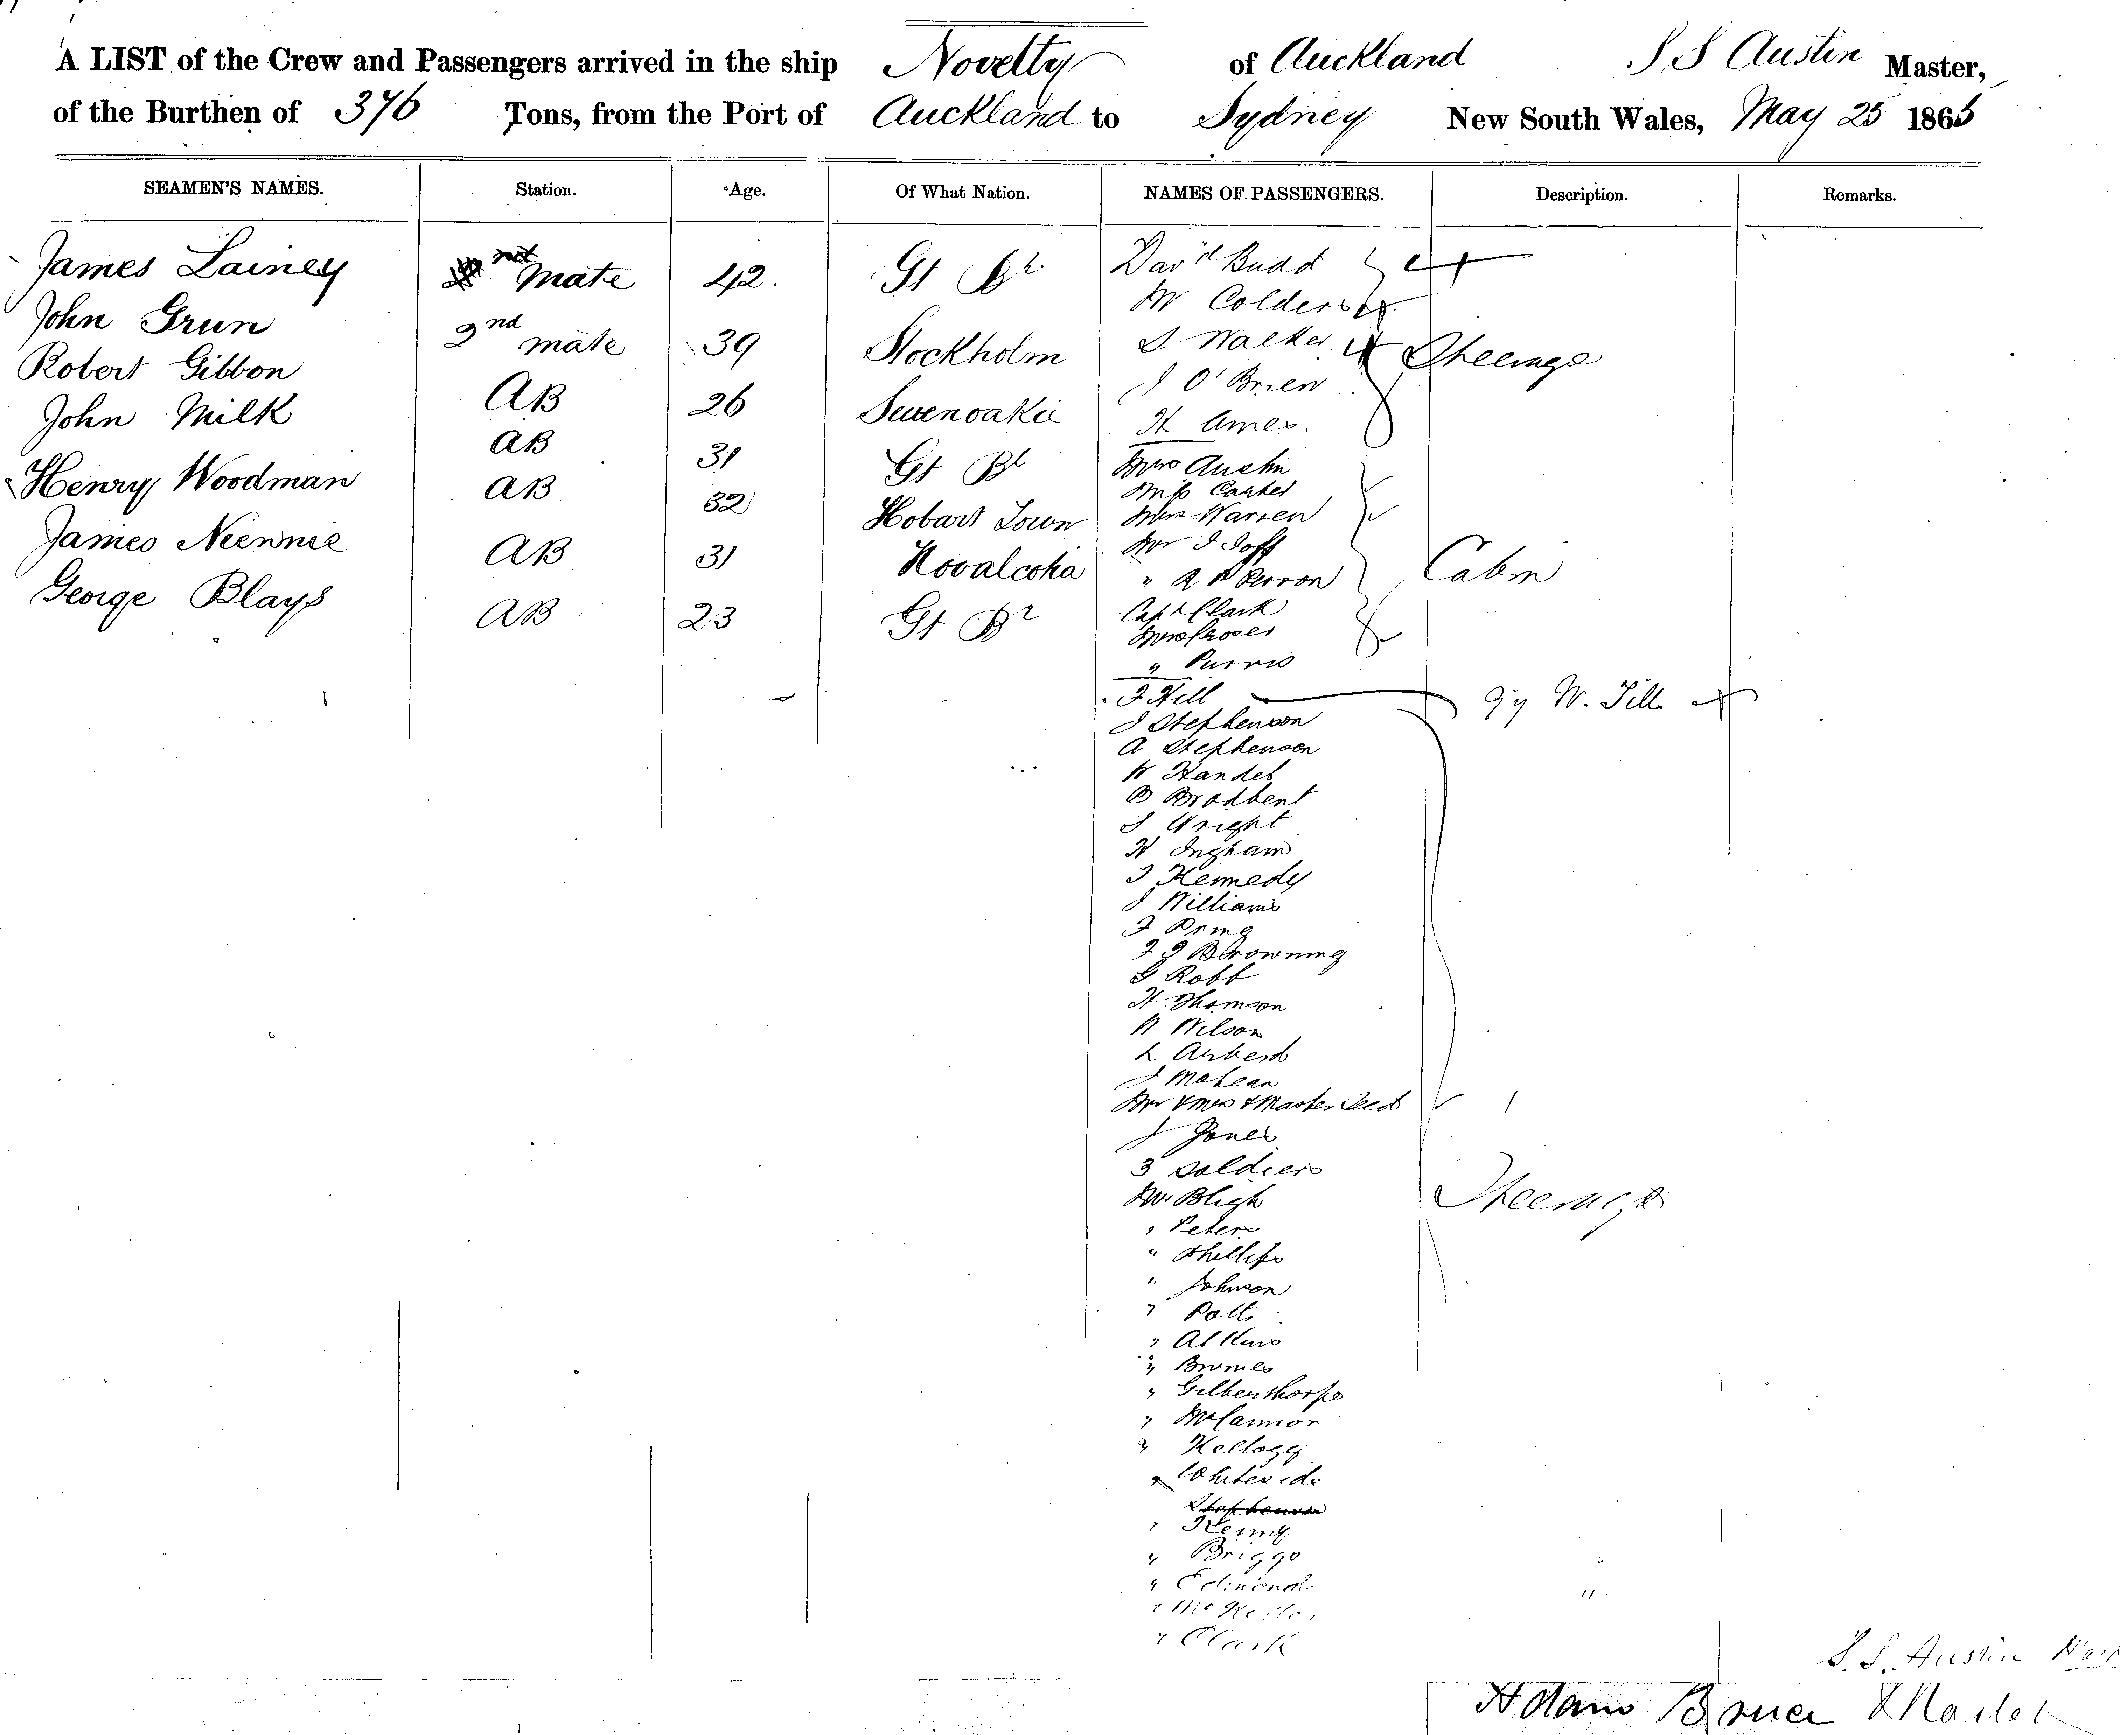 A LIST of the Crew and Passengers arrived in the ship Novelty of Auckland S S Austin Master,
of the Burthen of 376 Tons, from the Port of Auckland to Sydney New South Wales, May 25 1865
SEAMEN'S NAMES. Station. Age. Of What Nation. NAMES OF PASSENGERS. Description. Remarks.
James Lainey mate 42. Gt Br
John Grun 2nd mate 39 Stockholm
Robert Gibbon AB 26
John Milk AB 31 Gt Bt
Henry Woodman AB 32 Hobart Town
James AB 31
George Blays AB 23 Gt Br
Dav'd Budd
W Colders
S Walker Steerage
J O'Brien
H Ames
Mrs Austin
Miss Carter
Mrs Warren
Mr J Joff
" Cabin
Capt Clark
Mrs
" Purvis
F Hill W. Till
J Stephenson
A Stephenson
W Handel
B Brodbent
J Wright
W Ingham
J Kennedy
J Williams
J Pring
J J Browning
G Robb
H Thomson
W Wilson
L
J McLean
Mr & Mrs & Master
J Jones
3 Soldiers
Mr Bligh Steerage
" Peters
" Phillips
" Johnson
" Potts
" Atkins
"
" Gilberthorpe
" McCannor
" Kellogg
" Whiteside
Stephenson
" Kenny
" Briggs
" Edmond
"
" Clark
S. S. Austin
Adam Bruce